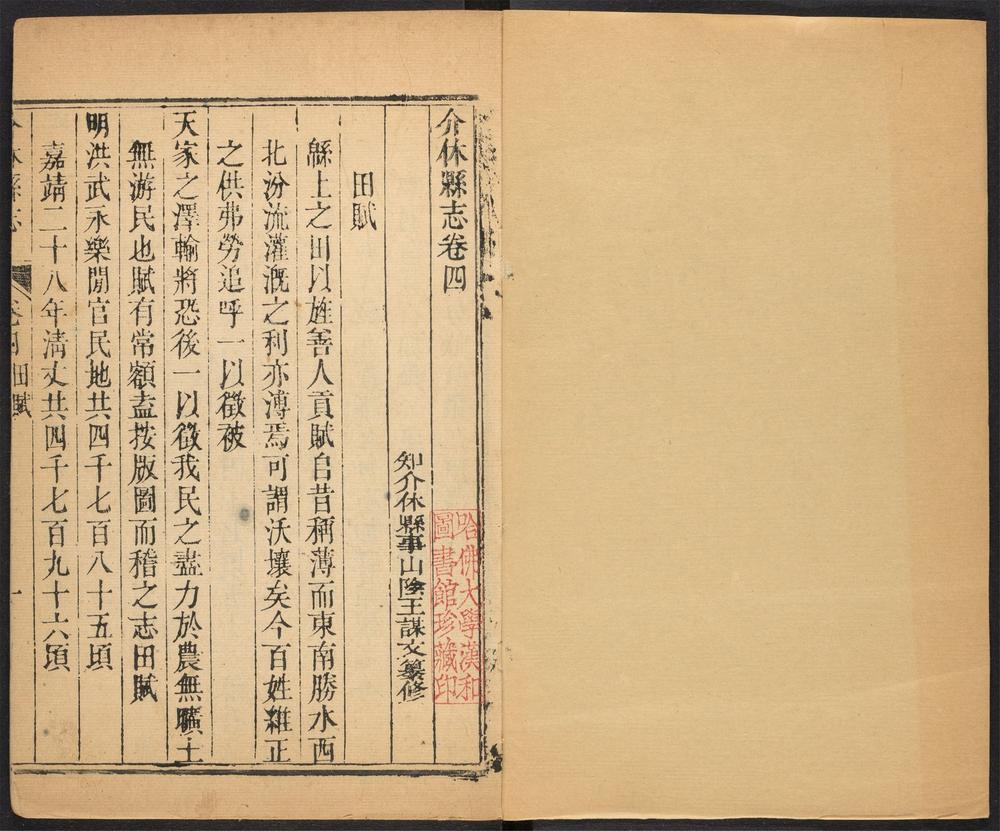 介休縣志卷四
知介休縣事山陰王謀文纂修
田賦
緜上之田以旌善人貢賦自昔稱薄而東南勝水西
北汾流灌溉之利亦溥焉可謂沃壤矣今百姓維正
之供弗勞追呼一以徵被
天家之澤輸將恐後一以徵我民之盡力於農無曠土
無游民也賦有常額盍按版圖而稽之志田賦
明洪武永樂間官民地共四千七百八十五頃
嘉靖二十八年清丈共四千七百九十六頃
介休縣志
卷四 田賦
一
哈佛大學漢和
圖書館珍藏印